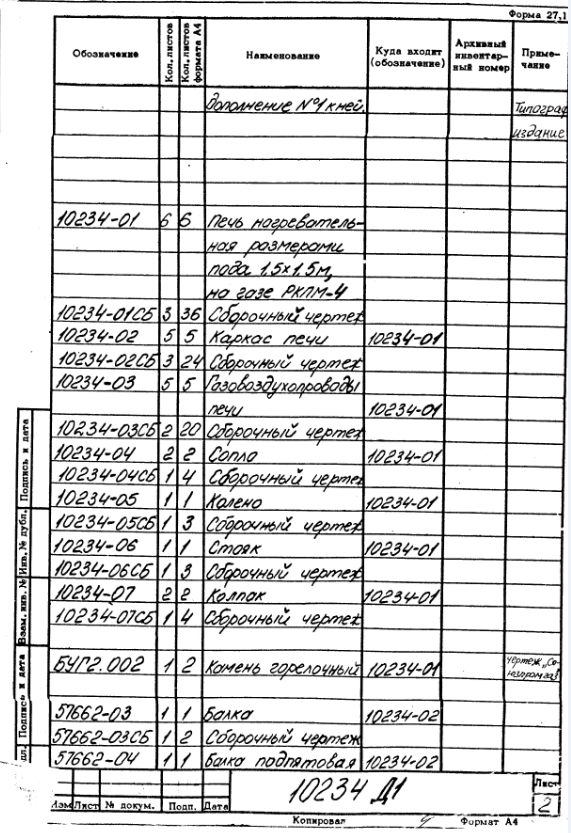 Форма 27,1
Обозначение Кол. листов Кол. листов формата А4 Наименование Куда входит (обозначение) Архивный инвентарный номер Примечание
дополнение №1 к ней. Типограф
издание
10234-01 6 6 Печь нагреватель-
ная размерами
пода 1,5х1,5м,
на газе РКЛМ-4
10234-01СБ 3 36 Сборочный чертеж
10234-02 5 5 Каркас печи 10234-01
10234-02СБ 3 24 Сборочный чертеж
10234-03 5 5 Газовоздухопроводы
печи 10234-01
10234-03СБ 2 20 Сборочный чертеж
10234-04 2 2 Сопло 10234-01
10234-04СБ 1 4 Сборочный чертеж
10234-05 1 1 Колено 10234-01
10234-05СБ 1 3 Сборочный чертеж
10234-06 1 1 Стояк 10234-01
10234-06СБ 1 3 Сборочный чертеж
10234-07 2 2 Колпак 10234-01
10234-07СБ 1 4 Сборочный чертеж
БУГ2.002 1 2 Камень горелочный 10234-01 чертеж „Со-
юзпромгаз"
57662-03 1 1 Балка 10234-02
57662-03СБ 1 2 Сборочный чертеж
57662-04 1 1 Балка подпятовая 10234-02
Подпись и дата
Инв. № дубл.
Взам. инв. №
Подпись и дата
дл.
Изм Лист № докум. Подп. Дата
10234 Д1
Лист
2
Копировал Формат А4